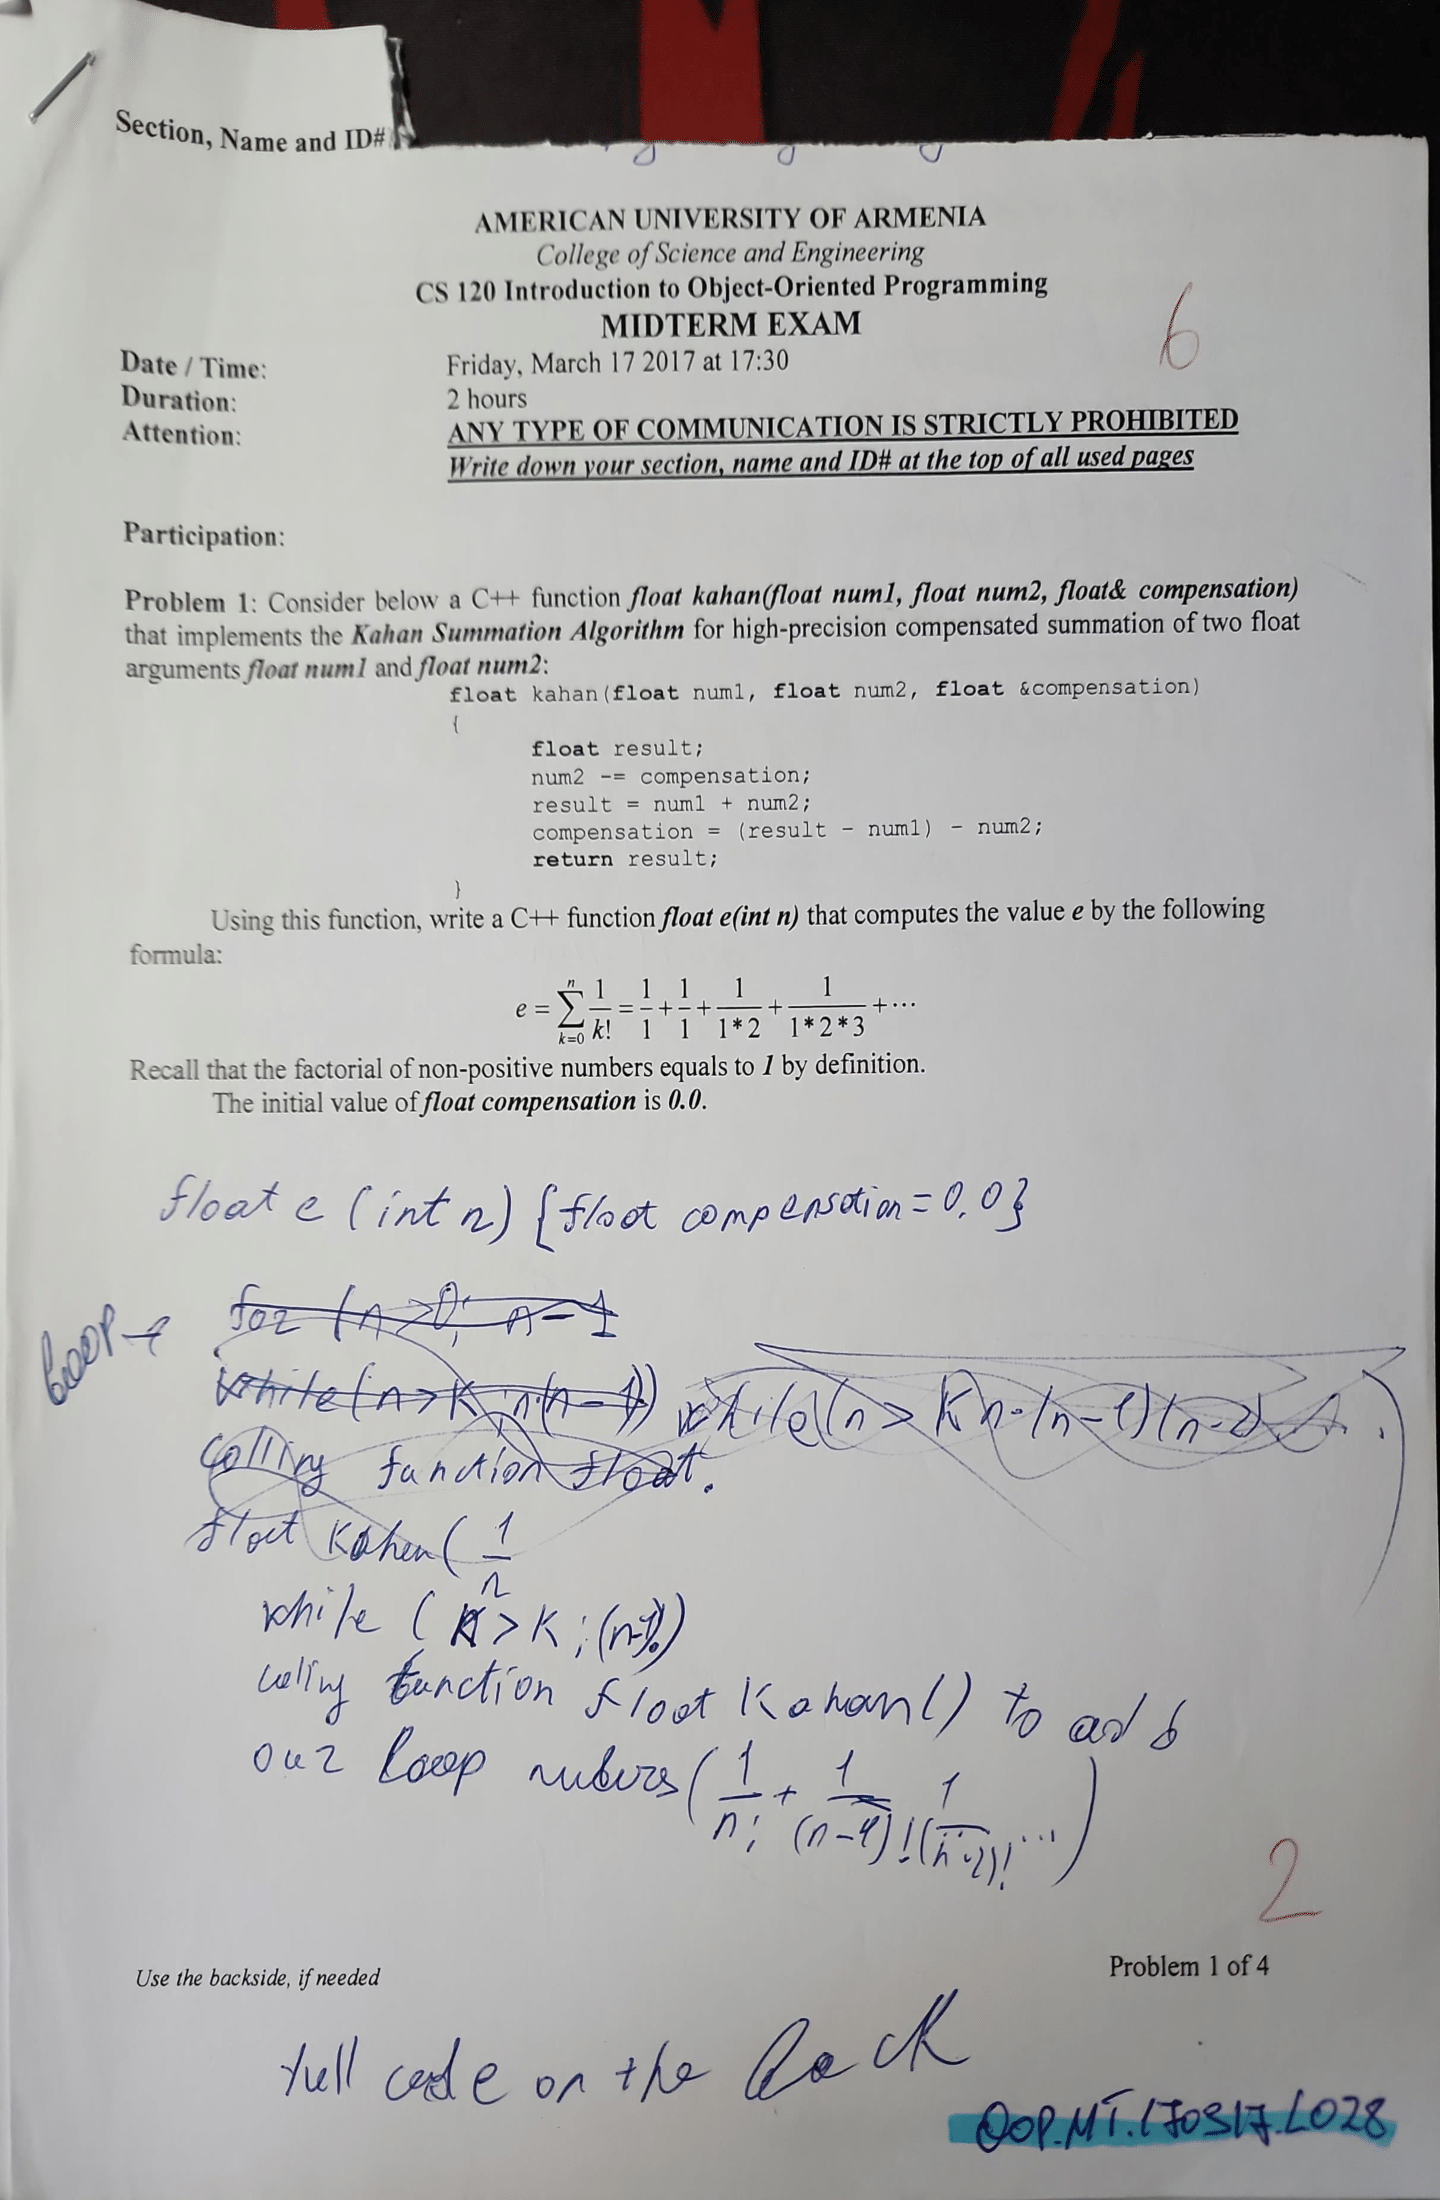 Section, Name and ID#
AMERICAN UNIVERSITY OF ARMENIA
College of Science and Engineering
CS 120 Introduction to Object-Oriented Programming
MIDTERM EXAM
6
Date / Time: Friday, March 17 2017 at 17:30
Duration: 2 hours
Attention: ANY TYPE OF COMMUNICATION IS STRICTLY PROHIBITED
Write down your section, name and ID# at the top of all used pages
Participation:
Problem 1: Consider below a C++ function float kahan(float num1, float num2, float& compensation)
that implements the Kahan Summation Algorithm for high-precision compensated summation of two float
arguments float num1 and float num2:
float kahan(float num1, float num2, float &compensation)
{
float result;
num2 -= compensation;
result = num1 + num2;
compensation = (result - num1) - num2;
return result;
}
Using this function, write a C++ function float e(int n) that computes the value e by the following
formula:
e = ∑_{k=0}^{n} 1/k! = 1/1 + 1/1 + 1/1*2 + 1/1*2*3 + ···
Recall that the factorial of non-positive numbers equals to 1 by definition.
The initial value of float compensation is 0.0.
float e (int n) {float compensation = 0.0}
for (n>0; n-1
loop →
while(n>K; n·(n-1)) while(n>K n·(n-1)(n-2)
calling function float.
float Kahen( 1/n
while ( n>K ; (n-1)!)
calling function float Kahan() to add
our loop nubers ( 1/n! + 1/(n-1)! 1/(n-2)! ...)
2
Use the backside, if needed
Problem 1 of 4
full code on the back
OOP.MT.170317.L028